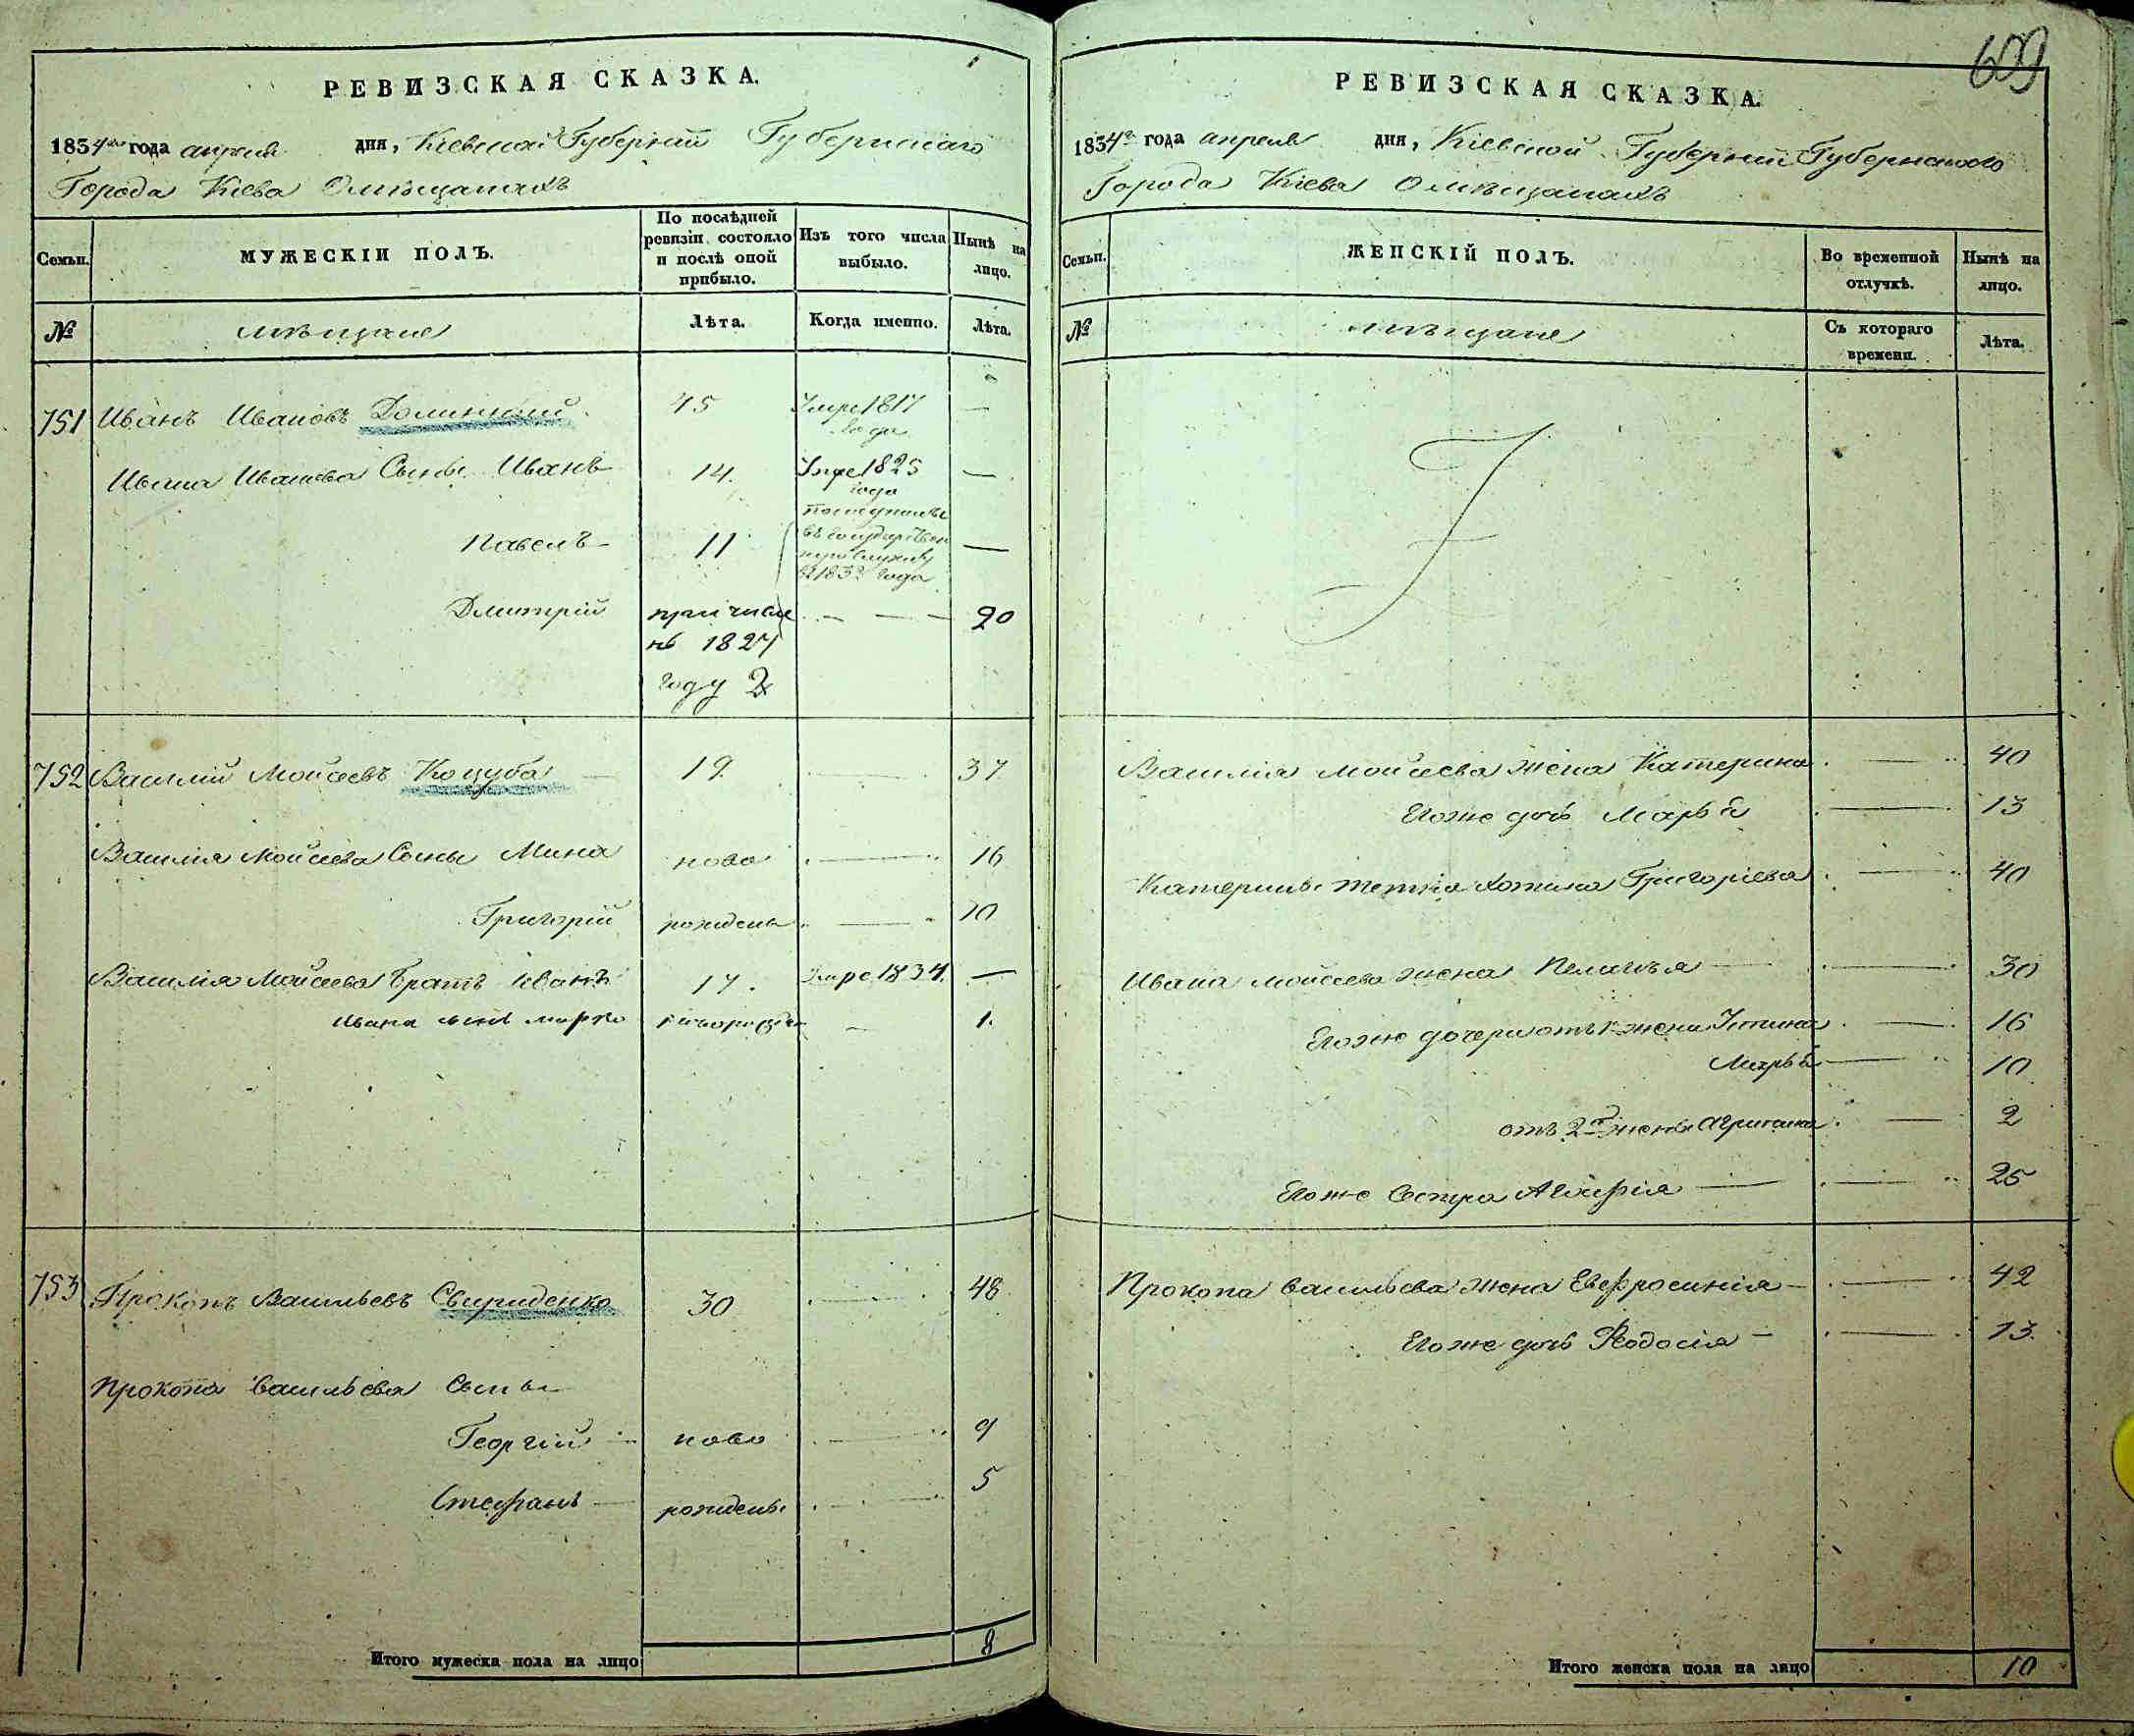 РЕВИЗСКАЯ СКАЗКА.
1834го года апреля дня, Кіевской Губерніи Губернскаго
Города Кіева О мѣщанахъ
Семьи.
МУЖЕСКІЙ ПОЛЪ.
По послѣдней ревизіи состояло и послѣ оной прибыло.
Изъ того числа выбыло.
Нынѣ на лицо.
№
мѣщане
Лѣта.
Когда именно.
Лѣта.
751 Иванъ Ивановъ 45 Умре 1817 года —
Ивана Иванова Сыны Иванъ 14. Умре 1825 года —
Павелъ 11 поступилъ въ государствен ную службу 183 года —
Дмитрій причисле нъ 1827 году 20
752 Василій Моисеевъ Коцуба 19. 37
Василія Моисеева Сыны Мина ново 16
Григорій рождены 10
Василія Моисеева братъ Иванъ 17. Умре 1834. —
Ивана сынъ Марко новорожден 1.
753 Прокопъ Васильевъ Свириденко 30 48
Прокопа Васильева Сыны
Георгій ново 9
Стефанъ рождены 5
Итого мужеска пола на лицо 8
609
РЕВИЗСКАЯ СКАЗКА.
1834го года апреля дня, Кіевской Губерніи Губернскаго
Города Кіева О мѣщанахъ
Семьи.
ЖЕНСКІЙ ПОЛЪ.
Во временной отлучкѣ.
Нынѣ на лицо.
№
мѣщане
Съ котораго времени.
Лѣта.
Василія Моисеева жена Катерина 40
Его же дочь Марья 13
Катерины тетка Григоріева 40
Ивана Моисеева жена Пелагья 30
Его же дочери отъ 1 жены Устина 16
Марья 10
отъ 2й жены 2
Его же Сестра Агафія 25
Прокопа Васильева жена Евфросинія 42
Его же дочь Феодосія 13.
Итого женска пола на лицо 10